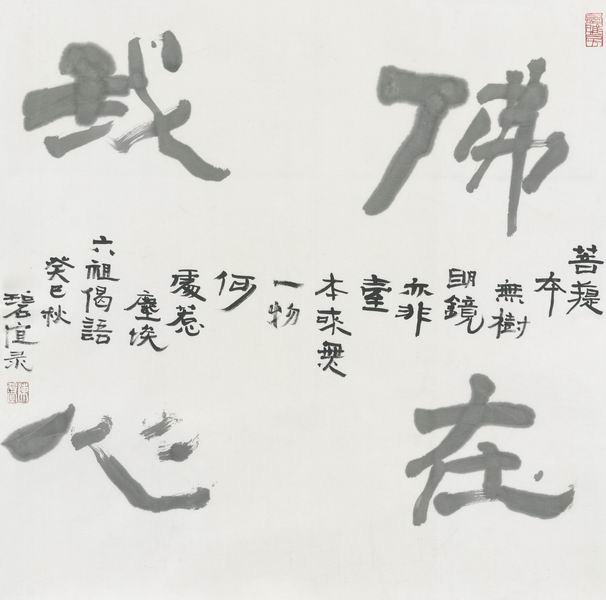 佛在
我心
菩提
本
無樹
明鏡
亦非
臺
本来無
一物
何
處惹
塵埃
六祖偈語
癸巳秋
碧宜录